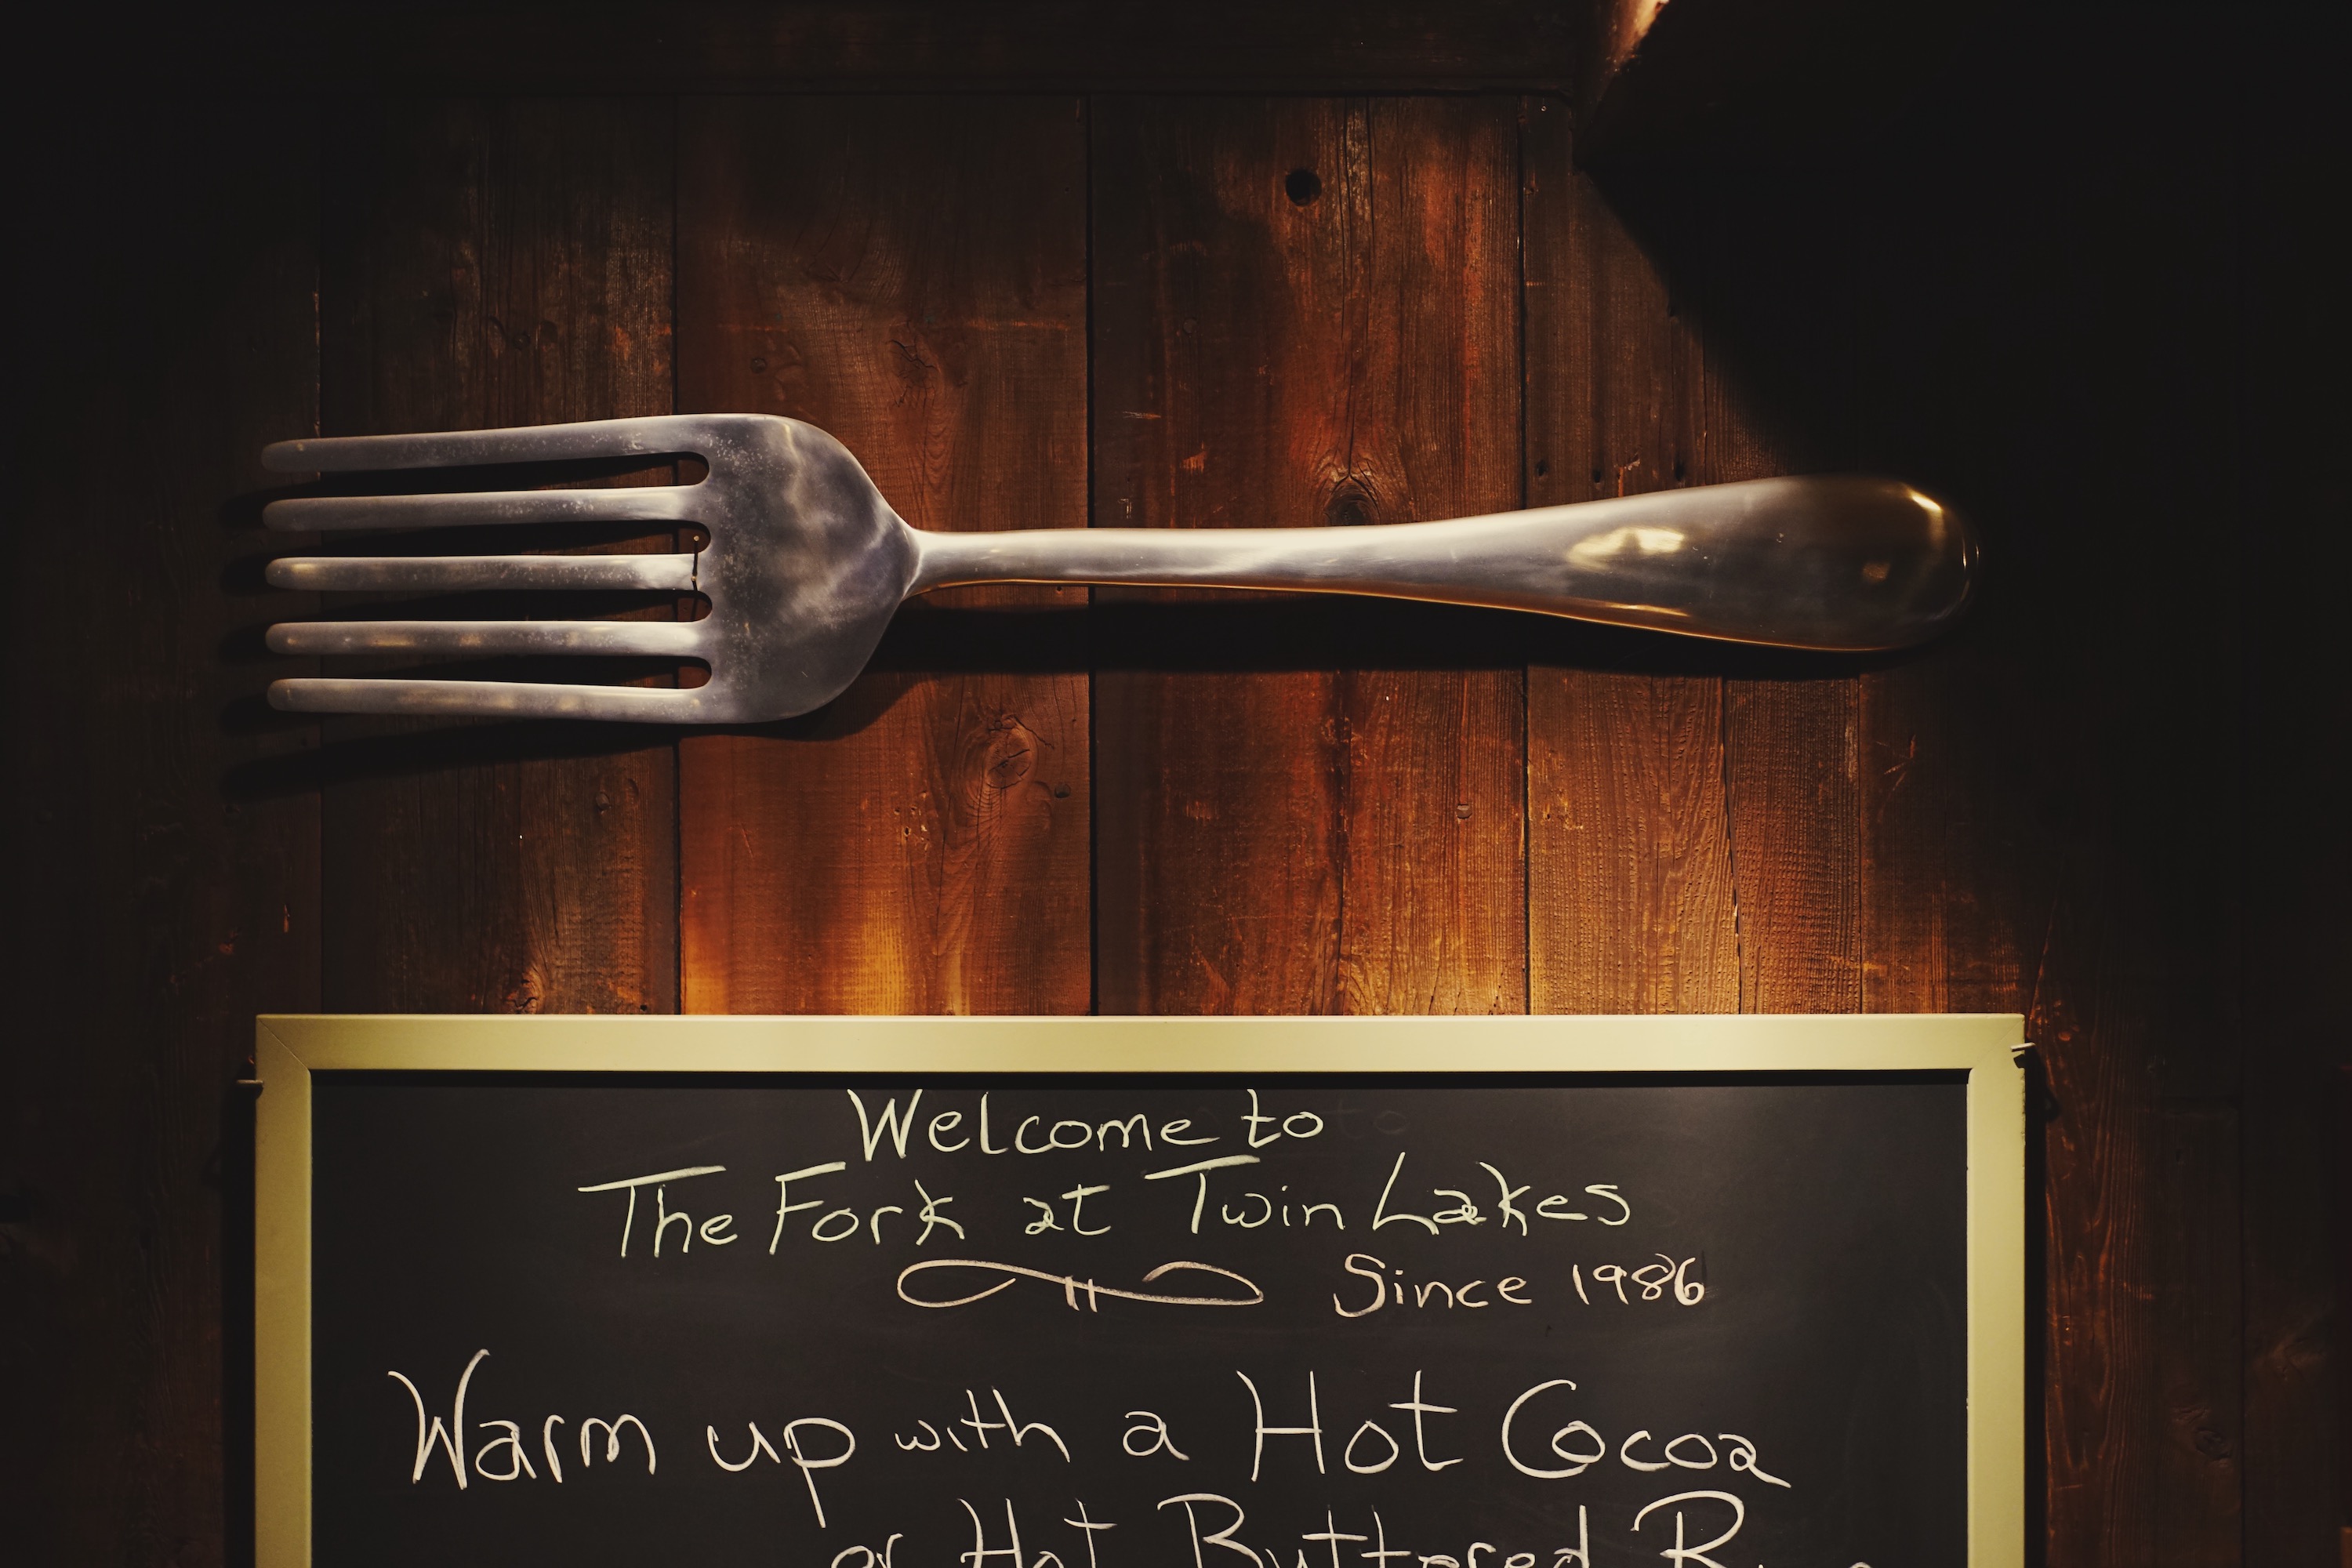 Welcome to
The Fork at Twin Lakes
Since 1986
Warm up with a Hot Cocoa
or Hot Buttered